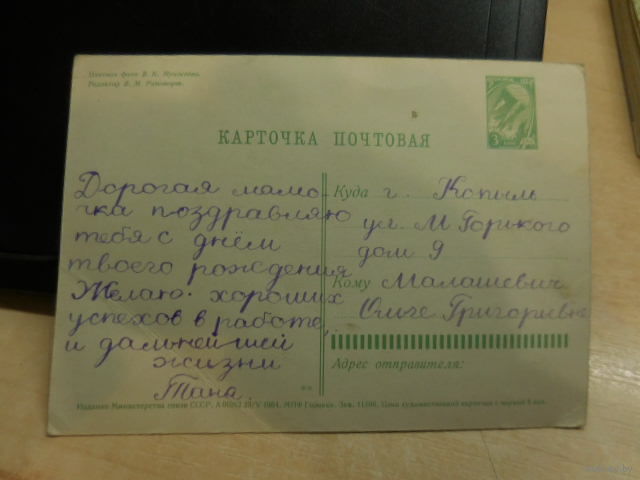 Цветное фото В. К.
Редактор В. М.
КАРТОЧКА ПОЧТОВАЯ
3
Дорогая мамо-
чка поздравляю
тебя с днём
твоего рождения
Желаю хороших
успехов в работе,
и дальнейшей
жизни
Тана.
Куда г. Копыль
ул М Горького
дом 9
Кому Малашевич
Ольге Григорьевне
Адрес отправителя:
Издание Министерства связи СССР. 1964. МПФ Гознака. Зак. Цена художественной карточки с маркой 4 коп.